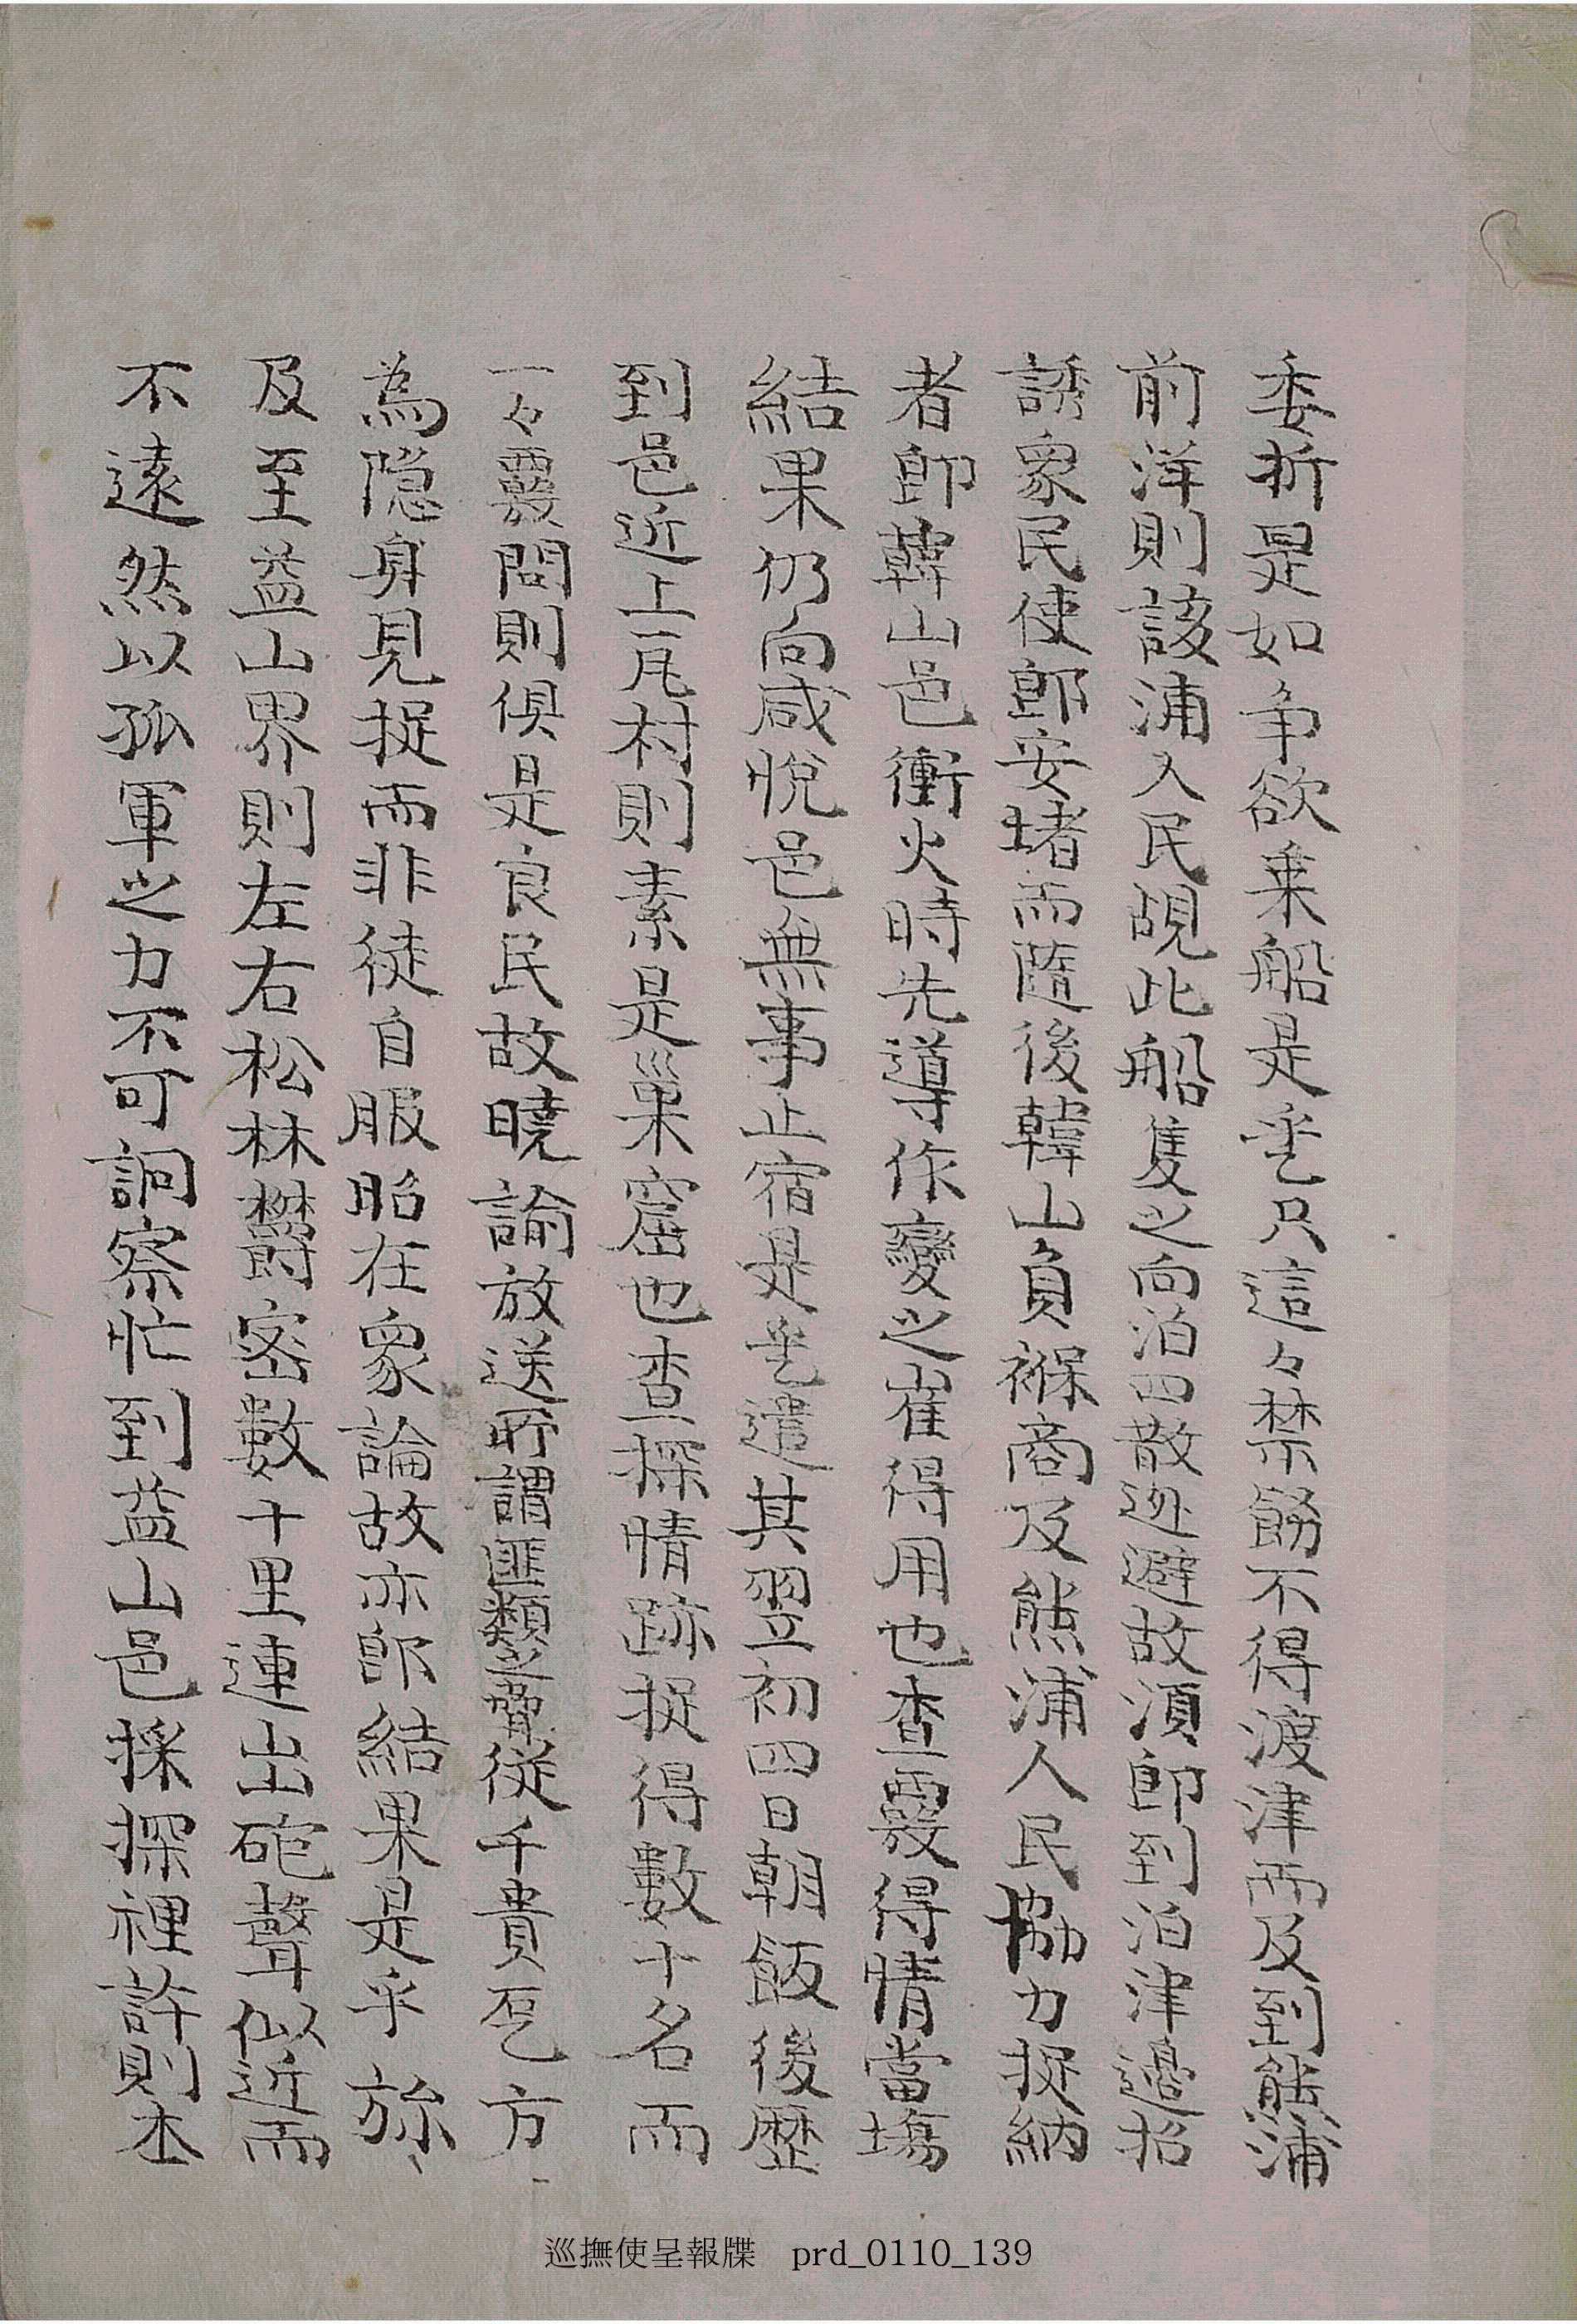 委折是如爭欲乗船是乎只這々禁飭不得渡津而及到熊浦
前洋則該浦入民覘此船隻之向泊四散迯避故須即到泊津邉招
誘衆民使卽安堵而隨後韓山負褓商及熊浦人民協力捉納
者卽韓山邑衝火時先導作變之崔得用也查覈得情當塲
結果仍向咸悅邑無事止宿是乎遣其翌初四日朝飯後歷
到邑近上瓦村則素是巢窟也查探情跡捉得數十名而
一々覈問則俱是良民故曉諭放送所謂匪類之脅從千貴乭方
為隐身見捉而非徒自服昭在衆論故亦卽結果是乎旀
及至益山界則左右松林欝密數十里連出砲聲似近而
不遠然以孤軍之力不可詗察忙到益山邑採探裡許則本
巡撫使呈報牒 prd_0110_139